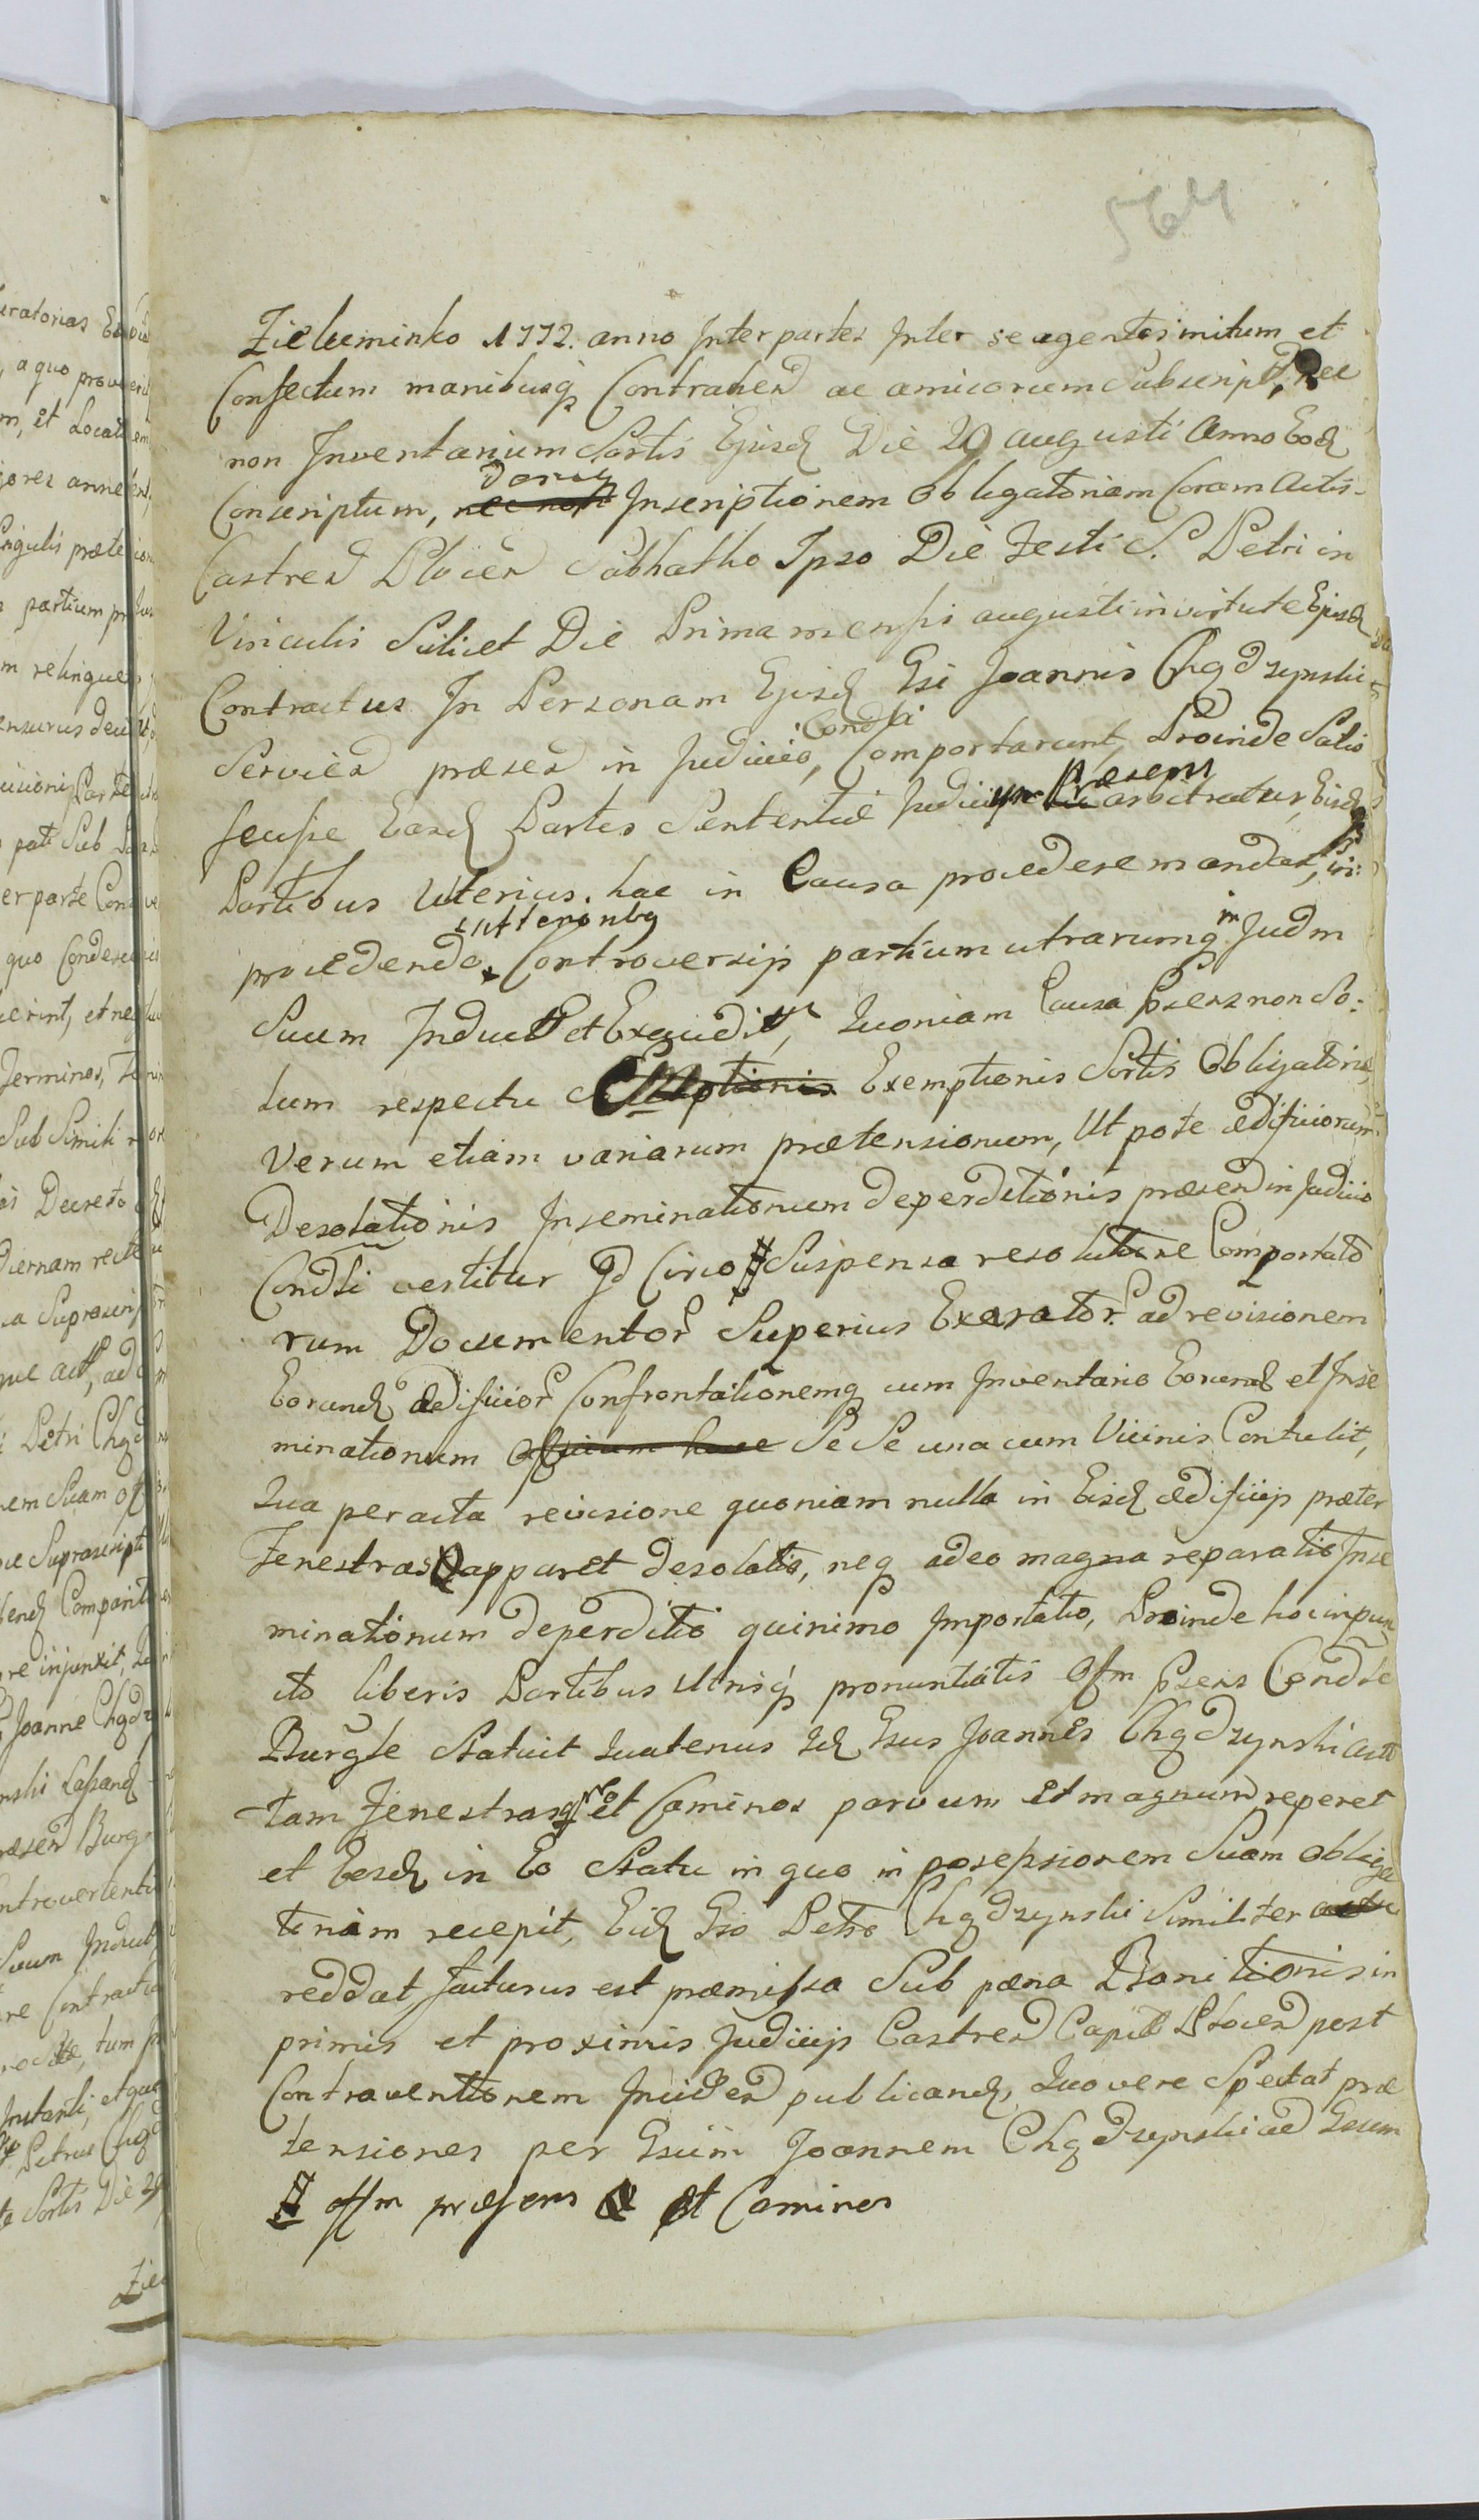 564
Zieluminko 1772. anno Inter partes Inter se agentes initum et
Confectum manibusq Contrahen ac amicorum Subscript, nec
non Inventarium Sortis Ejusd Die 20 augusti Anno Eod
Conscriptum, nec non deniq Inscriptionem Obligatoriam Coram Actis
Castren Plocen Sabbatho Ipso Die Festi S. Petri in
Vinculis Scilicet Die Prima mensis augusti in virtute Ejusd
Contractus In Personam Ejusd Gsi Joannis Chądzynski
Servien præsen in Judicio Condsi, Comportarunt, Proinde Satis
fecisse Easd Partes Sententiæ Judicium præsens arbitratur, Eisd
Partibus Ulterius hac in Causa procedere mandat,
procedendo, Controversijs partium utrarumq in Judm
Suum Induct et Exaudit, Quoniam Causa psens non So-
lum respectu Exemptionis Sortis Obligatoriæ
Verum etiam variarum prætensionum, Ut pote ædificiorum
Desolationis Inseminationum deperditionis præsen in Judicio
Condsi vertitur qd Circo # Suspensa resolutione Comportato
rum Documentor Superius Exarator ad revisionem
Eorund ædificior Confrontationemq cum Inventario Eorund et Inse
minationum officium hocce Se Se una cum Vicinis Contulit,
Qua peracta revisione quoniam nulla in Eisd ædificijs præter
Fenestras apparet desolatio, neq adeo magna reparatio Inse
minationum deperditio quinimo Importatio, Proinde hoc in pun
cto liberis Partibus Utrisq pronuntiatis Offm psens Condle
Burgle Statuit Quatenus Id Gsus Joannes Chądzynski actu
tam Fenestras q et Caminos parvum et magnum reperet
et Easd in Eo Statu in quo in possessionem Suam obliga
toriam recepit, Eid Gso Petro Chądzynski Similiter actu
reddat, facturus est præmissa Sub pæna Banitionis in
primis et proximis Judicijs Castren Capit Plocen post
Contraventionem Inciden publicand, Quo vero Spectat præ
tensiones per Gsum Joannem Chądzynski ad Gsum
# offm præsens & et Caminos